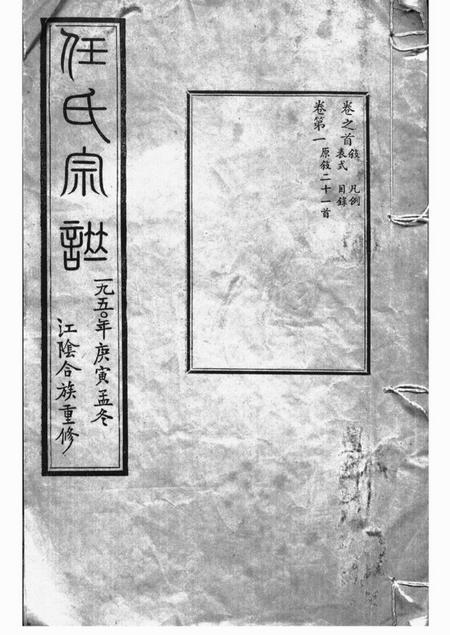 任氏宗譜
一九五〇年庚寅孟冬
江陰合族重修
卷之首 敘 凡例
表式 目錄
卷第一 原敘二十一首